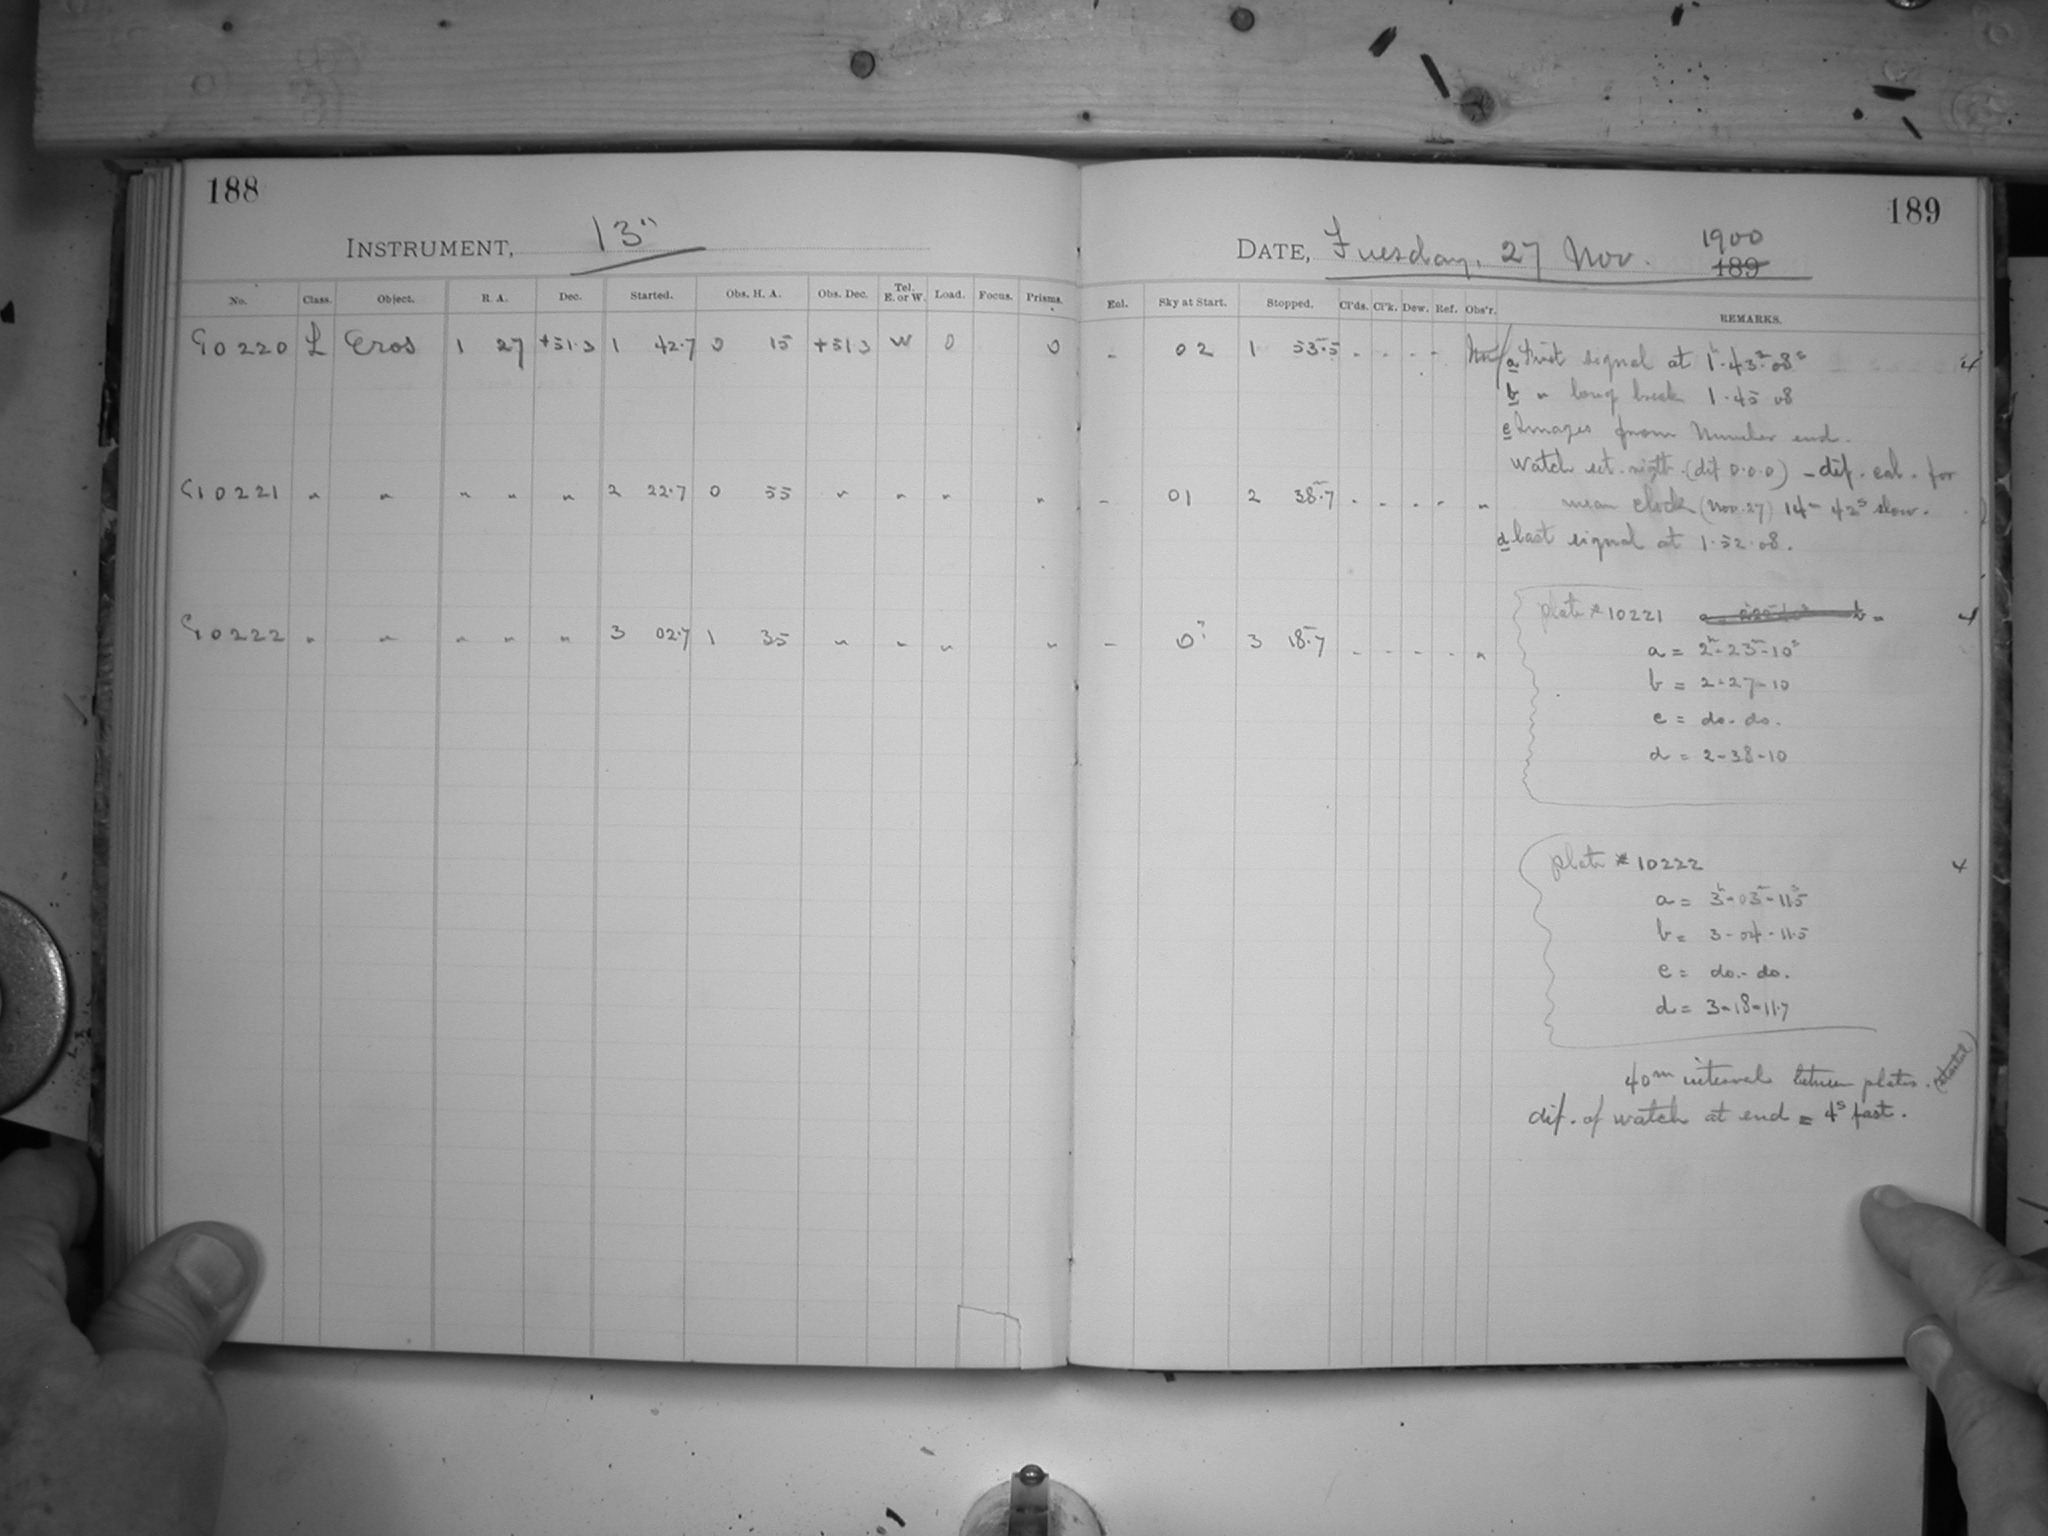 188
INSTRUMENT, 13"
No. Class. Object. R. A. Dec. Started. Obs. H. A. Obs. Dec. Tel. E. or W. Load. Focus. Prisms.
G10220 L Eros 1 27 +51.3 1 42.7 0 15 +51.3 W 0 0
G10221 " " " " " 2 22.7 0 55 " " " "
G10222 " " " " " 3 02.7 1 35 " " " "
189
DATE, Tuesday, 27 Nov. 1900
189
Eol. Sky at Start. Stopped. Cl'ds. Cl'k. Dew. Ref. Obs'r. REMARKS.
- 02 1 53.5 - - - -
- 01 2 38.7 - - - - "
- 0? 3 18.7 - - - - "
a First signal at 1h.43m.08s 4
b " long break 1.45 08
c Images from Number end.
Watch set right (dif 0.0.0) - dif. cal. for
mean clock (Nov. 27) 14m 42s slow.
d last signal at 1.52.08.
plate #10221 b = 4
a = 2h-23m-10s
b = 2-27-10
c = do. do.
d = 2-38-10
plate #10222 4
a = 3h-03m-11.5s
b = 3-04-11.5
c = do. do.
d = 3-18-11.7
40m intervals between plates. (started)
dif. of watch at end = 4s fast.